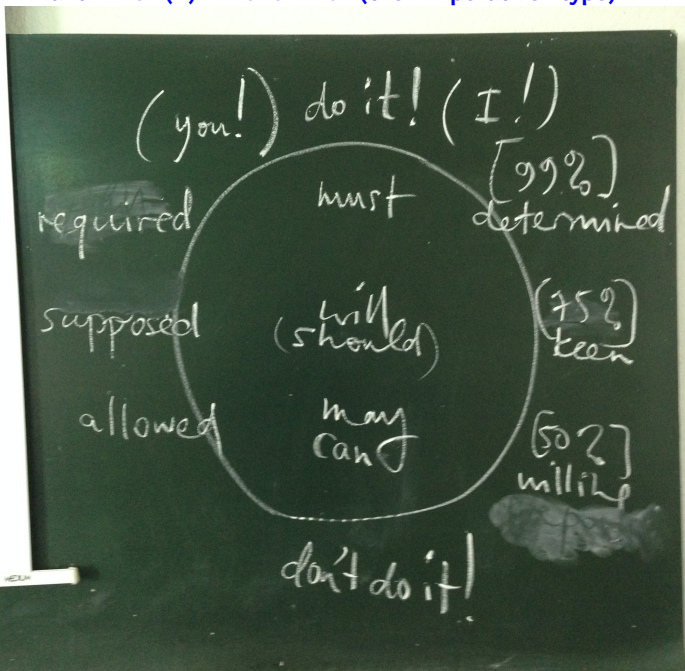 (you!) do it! (I!)
[99%]
required must determined
supposed will [75%]
(should) keen
allowed may [50%]
can willing
don't do it!